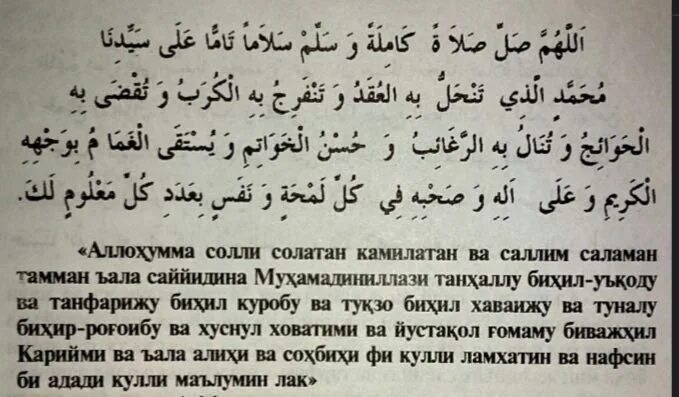 اَللَّهُمَّ صَلِّ صَلاَ ةً كَامِلَةً وَ سَلِّمْ سَلاَماً تَامًّا عَلَى سَيِّدِنَا
مُحَمَّدٍ الَّذِي تَنْحَلُّ بِهِ العُقَدُ وَ تَنْفَرِجُ بِهِ الْكُرَبُ وَ تُقْضَى بِهِ
الْحَوَائِجُ وَ تُنَالُ بِهِ الرَّغَائِبُ وَ حُسْنُ الْخَوَاتِمِ وَ يُسْتَقَى الْغَمَا مُ بِوَجْهِهِ
الْكَرِيمِ وَ عَلَى اَلِهِ وَ صَحْبِهِ فِي كُلِّ لَمْحَةٍ وَ نَفَسٍ بِعَدَدِ كُلِّ مَعْلُومٍ لَكَ.
«Аллоҳумма солли солатан камилатан ва саллим саламан
тамман ъала саййидина Муҳамадиниллази танҳаллу биҳил-уъқоду
ва танфарижу биҳил куробу ва туқзо биҳил хаваижу ва туналу
биҳир-роғоибу ва хуснул ховатими ва йустақол ғомаму биважҳил
Карийми ва ъала алиҳи ва соҳбиҳи фи кулли ламхатин ва нафсин
би адади кулли маълумин лак»